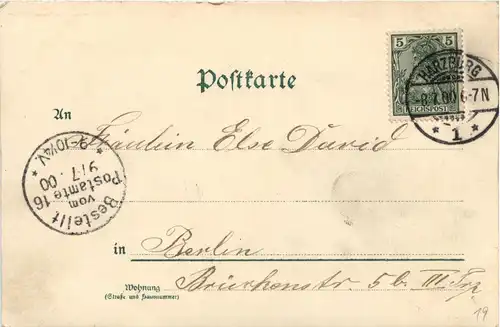 5 5
REICHSPOST
HARZBURG
8.7.00 6-7N
* 1 *
Postkarte
An
Fräulein Else David
Bestellt
vom
Postamte 16
9/7.00
8-10¼V.
in Berlin
Wohnung
(Straße und Hausnummer)
Brückenstr 5b III Trp
19